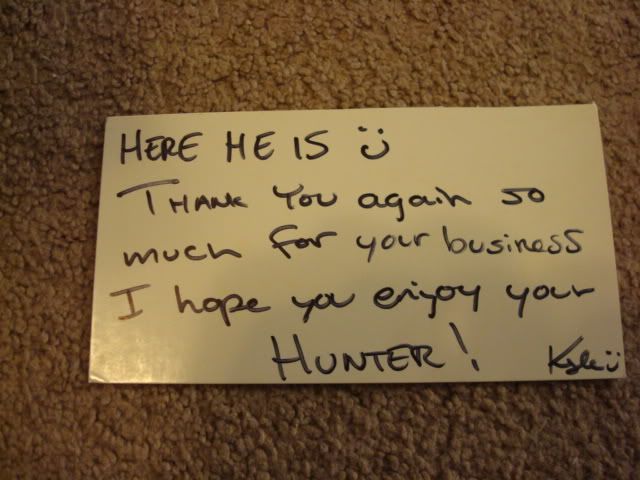 HERE HE IS ü
THANK YOU again so
much for your business
I hope you enjoy your
HUNTER!
Kyle ü